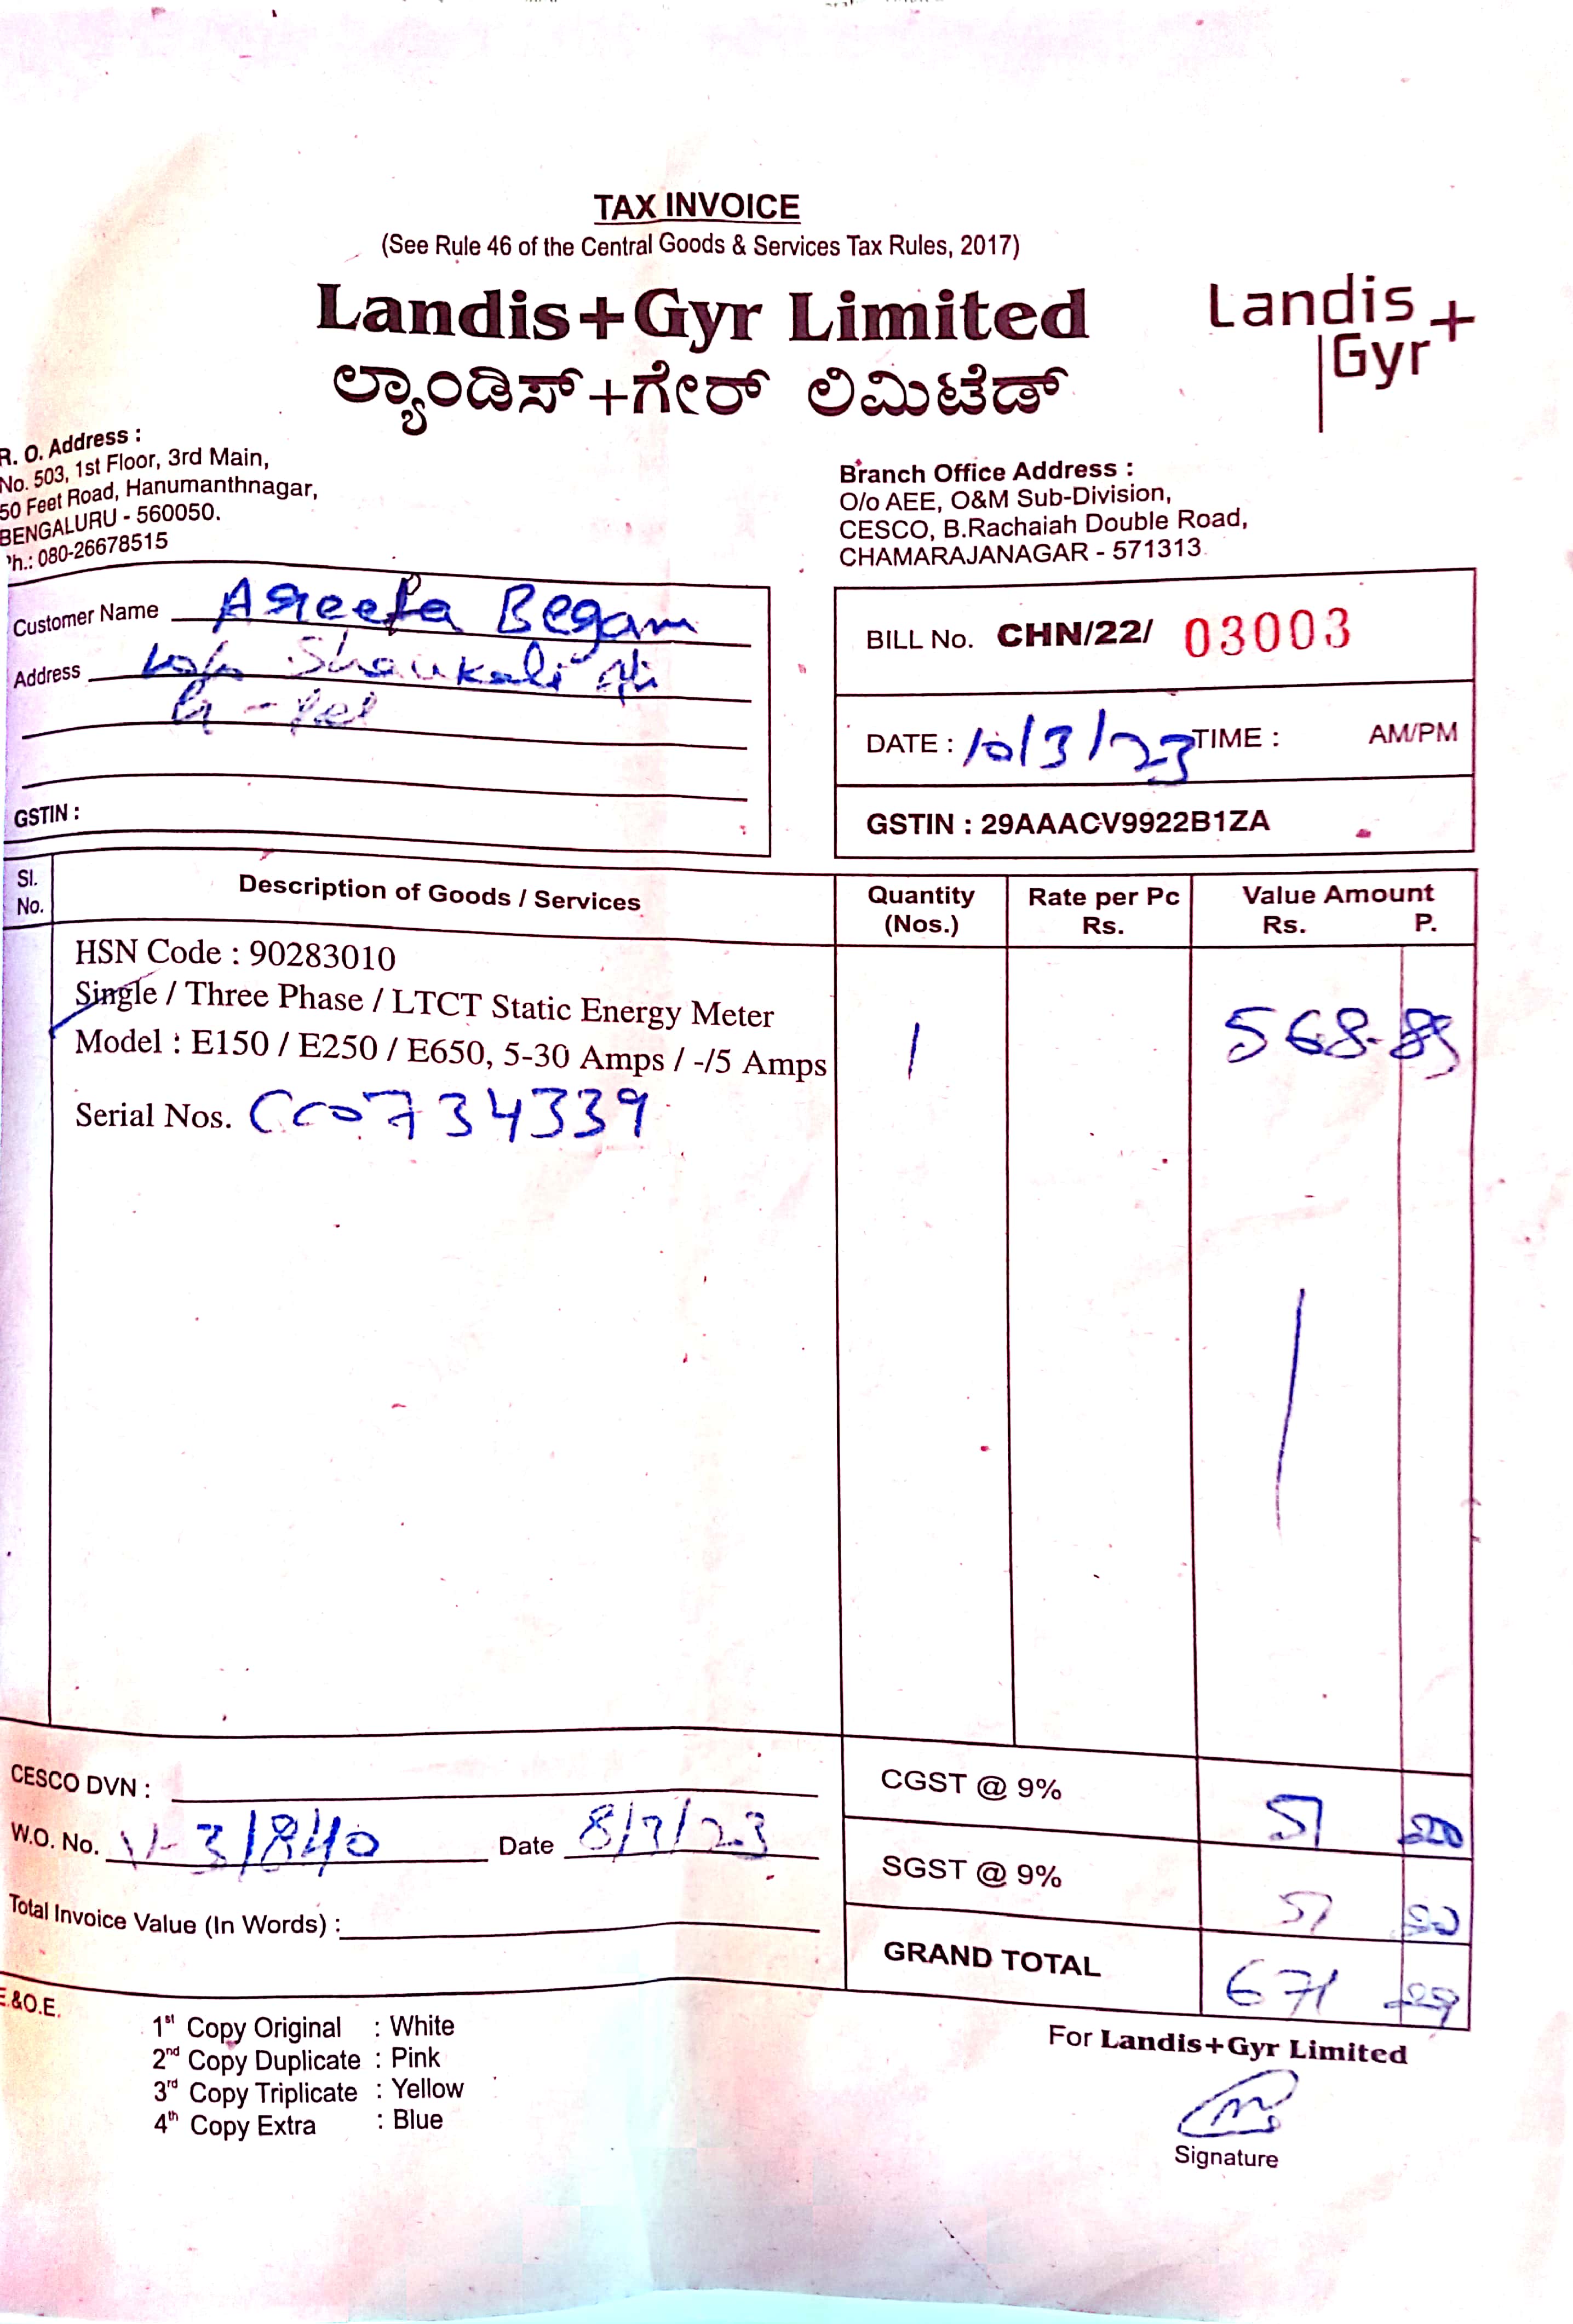 TAX INVOICE
(See Rule 46 of the Central Goods & Services Tax Rules, 2017)
Landis+Gyr Limited
ಲ್ಯಾಂಡಿಸ್+ಗೇರ್ ಲಿಮಿಟೆಡ್
Landis+
Gyr
R. O. Address :
No. 503, 1st Floor, 3rd Main,
50 Feet Road, Hanumanthnagar,
BENGALURU - 560050.
Ph.: 080-26678515
Branch Office Address :
O/o AEE, O&M Sub-Division,
CESCO, B.Rachaiah Double Road,
CHAMARAJANAGAR - 571313
Customer Name Begam
Address
GSTIN :
BILL No. CHN/22/ 03003
DATE : 10/3/23 TIME : AM/PM
GSTIN : 29AAACV9922B1ZA
Sl. No. Description of Goods / Services Quantity (Nos.) Rate per Pc Rs. Value Amount Rs. P.
HSN Code : 90283010
Single / Three Phase / LTCT Static Energy Meter
Model : E150 / E250 / E650, 5-30 Amps / -/5 Amps 1 568.89
Serial Nos. CC0734339
CESCO DVN :
W.O. No. 3/840 Date 8/3/23
Total Invoice Value (In Words) :
CGST @ 9% 51
SGST @ 9% 51
GRAND TOTAL 671
E.&O.E.
1st Copy Original : White
2nd Copy Duplicate : Pink
3rd Copy Triplicate : Yellow
4th Copy Extra : Blue
For Landis+Gyr Limited
Signature